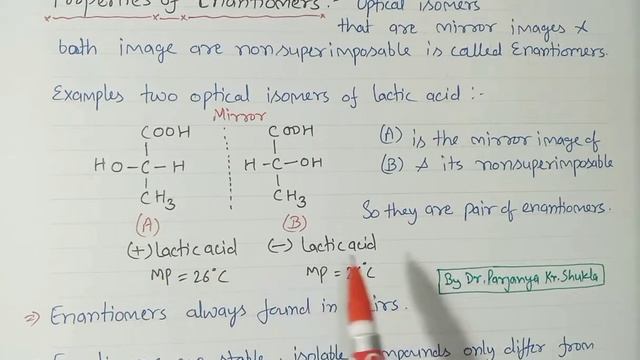 Properties of Enantiomers :- Optical isomers
that are mirror images &
both image are nonsuperimposable is called Enantiomers.
Examples two optical isomers of lactic acid :-
Mirror
COOH COOH (A) is the mirror image of
HO-C-H H-C-OH (B) & its nonsuperimposable
CH3 CH3
So they are pair of enantiomers.
(A) (B)
(+) lactic acid (-) lactic acid
MP = 26°C MP = °C
By Dr. Parjanya Kr. Shukla
⇒ Enantiomers always found in
stable, compounds only differ from